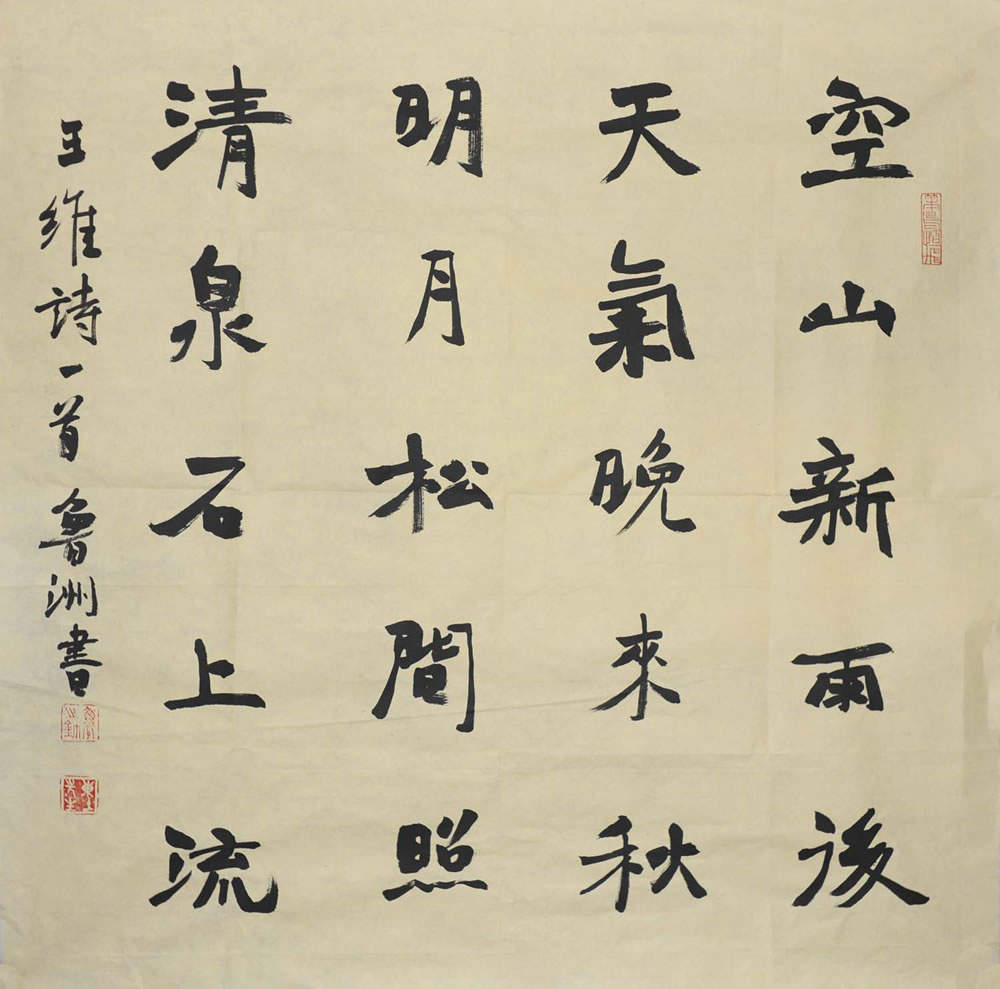 空山新雨後
天氣晚來秋
明月松間照
清泉石上流
王維詩一首 魯洲書